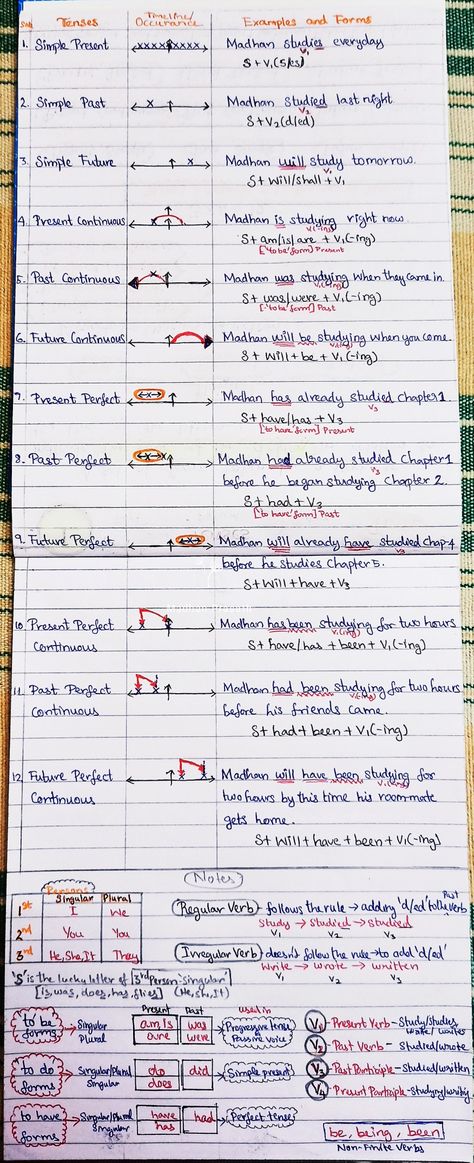 S.No Tenses Timeline/Occurance Examples and Forms
1. Simple Present Madhan studies everyday
V1
S+V1(s/es)
2. Simple Past Madhan studied last night
V2
S+V2(d/ed)
3. Simple Future Madhan will study tomorrow.
V1
S+ Will/shall +V1
4. Present Continuous Madhan is studying right now.
V1(-ing)
S+am/is/are +V1(-ing)
['to be' form] Present
5. Past Continuous Madhan was studying when they came in.
V1(-ing)
S+was/were +V1(-ing)
['to be' form] Past
6. Future Continuous Madhan will be studying when you come.
V1(-ing)
S+Will+be +V1(-ing)
7. Present Perfect Madhan has already studied chapter 1.
V3
S+have/has +V3
['to have' form] Present
8. Past Perfect Madhan had already studied Chapter 1
V3
before he began studying Chapter 2
S+had+V3
['to have' form] Past
9. Future Perfect Madhan will already have studied chap 4
V3
before he studies Chapter 5.
S+Will+have+V3
10. Present Perfect Continuous Madhan has been studying for two hours
V1(ing)
S+have/has +been +V1(-ing)
11. Past Perfect Continuous Madhan had been studying for two hours
V1(-ing)
before his friends came.
S+had+been+V1(-ing)
12. Future Perfect Continuous Madhan will have been studying for
V1(-ing)
two hours by this time his roommate
gets home.
S+Will+have+been+V1(-ing)
Notes
Persons
Singular Plural
1st I We
2nd You You
3rd He, She, It They
's' is the lucky letter of 3rd Person 'Singular'
[is, was, does, has, flies] (He, She, It)
Regular Verb follows the rule → adding 'd/ed' to the verb
Past
Study → Studied → studied
V1 V2 V3
Irregular Verb doesn't follow the rule → to add 'd/ed'
Write → wrote → written
V1 V2 V3
Present Past used in
'to be' forms Singular Plural am, is are was were Progressive tense & Passive voice
'to do' forms Singular/Plural Singular do does did Simple present
'to have' forms Singular/Plural Singular have has had Perfect tense
V1 - Present Verb - Study/Studies
write/writes
V2 - Past Verb - Studied/wrote
V3 - Past Participle - Studied/written
V4 - Present Participle - Studying/writing
be, being, been
Non-Finite Verbs